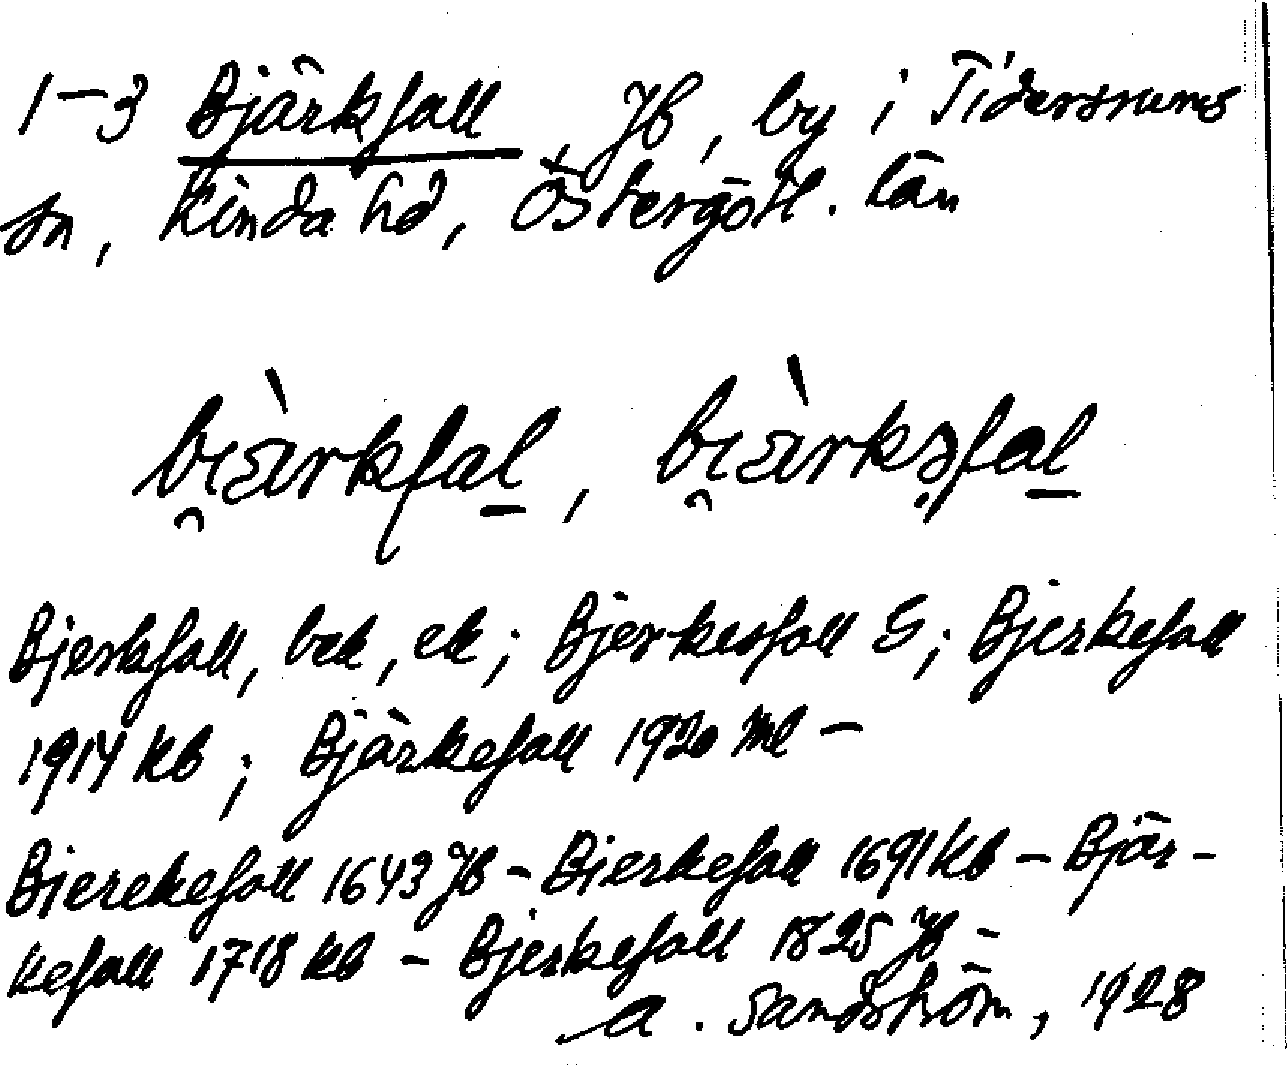 1-3 Bjärkfall Jb, by i Tidersrums
sn, Kinda hd, Östergötl. län
bi̯ärkfal,
Bjerkfall, bek, ek; Bjerkesfall G; Bjerkefall
1914 kb; Bjärkefall 1920 ml -
Bierekefall 1643 Jb - Bierkefall 1691 kb - Bjär-
kefall 1718 kb - Bjerkefall 1825 Jb -
A. Sandström, 1928